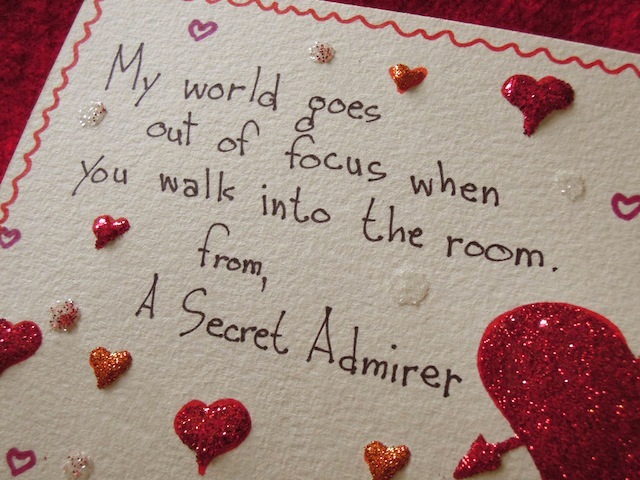 My world goes
out of focus when
you walk into the room.
from,
A Secret Admirer